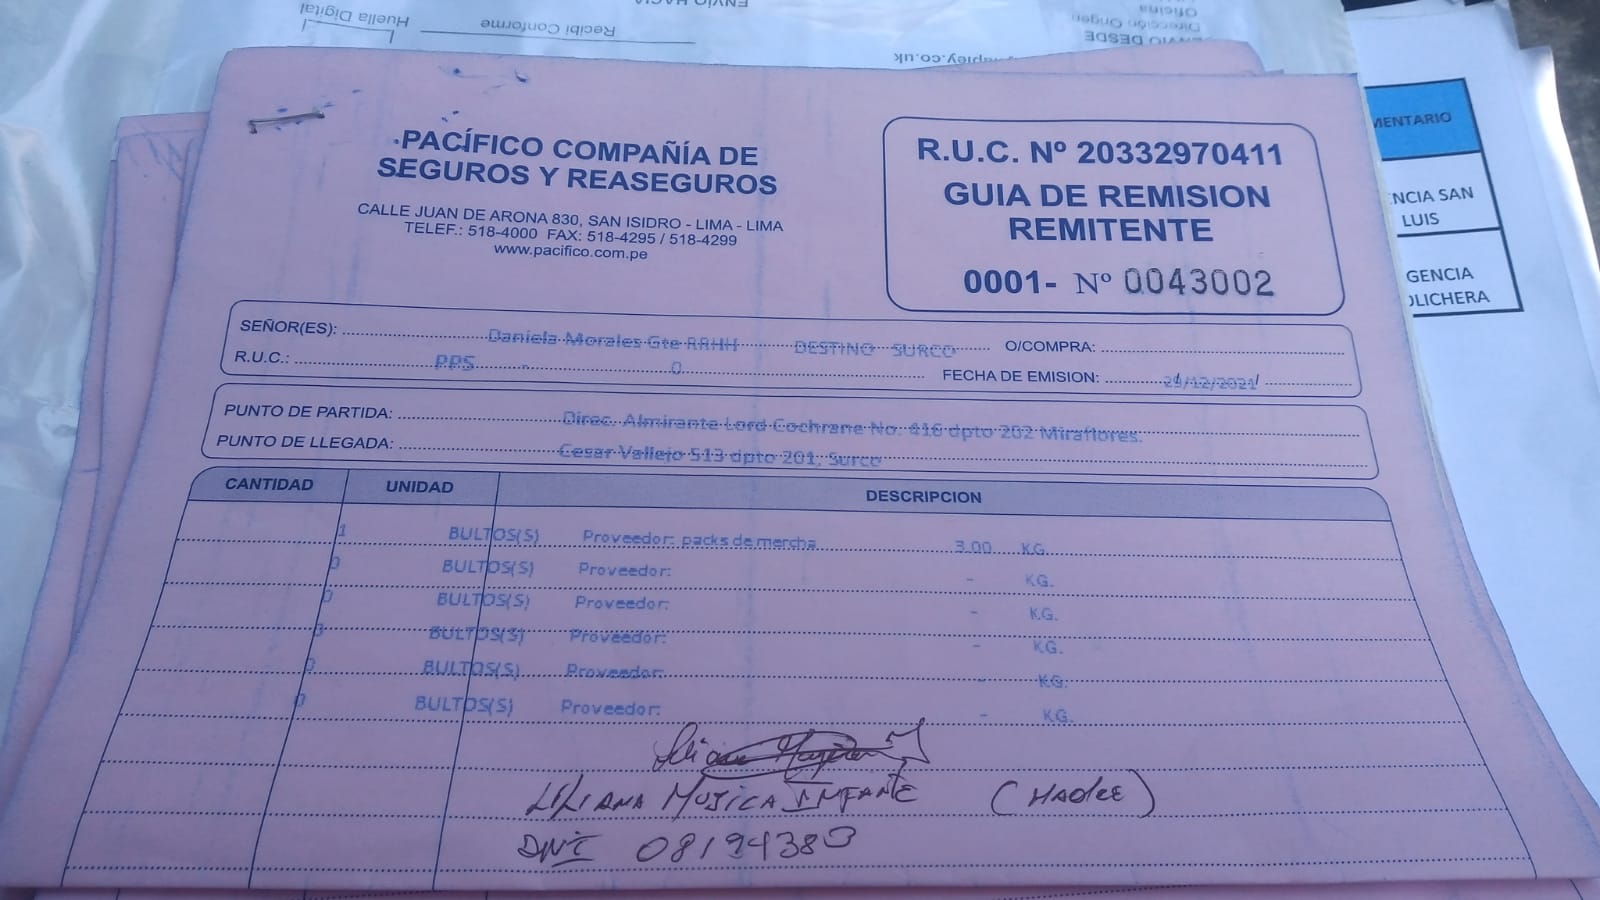 ENVÍO HACIA
Huella Digital
Recibi Conforme
Oficina
Dirección Origen
DESDE
pley.co.uk
PACÍFICO COMPAÑÍA DE
SEGUROS Y REASEGUROS
CALLE JUAN DE ARONA 830, SAN ISIDRO - LIMA - LIMA
TELEF.: 518-4000 FAX: 518-4295 / 518-4299
www.pacifico.com.pe
R.U.C. Nº 20332970411
GUIA DE REMISION
REMITENTE
0001- Nº 0043002
MENTARIO
NCIA SAN
LUIS
GENCIA
OLICHERA
SEÑOR(ES): Daniela Morales Gte RRHH DESTINO SURCO O/COMPRA:
R.U.C.: PPS - 0 FECHA DE EMISION: 29/12/2021
PUNTO DE PARTIDA: Direc. Almirante Lord Cochrane No. 416 dpto 202 Miraflores.
PUNTO DE LLEGADA: Cesar Vallejo 513 dpto 201, Surco
CANTIDAD UNIDAD DESCRIPCION
1 BULTOS(S) Proveedor: packs de mercha 3.00 KG.
0 BULTOS(S) Proveedor: - KG.
0 BULTOS(S) Proveedor: - KG.
BULTOS(S) Proveedor: - KG.
0 BULTOS(S) Proveedor: - KG.
0 BULTOS(S) Proveedor: - KG.
LILIANA MUJICA INFANTE (MADRE)
DNI 08194383